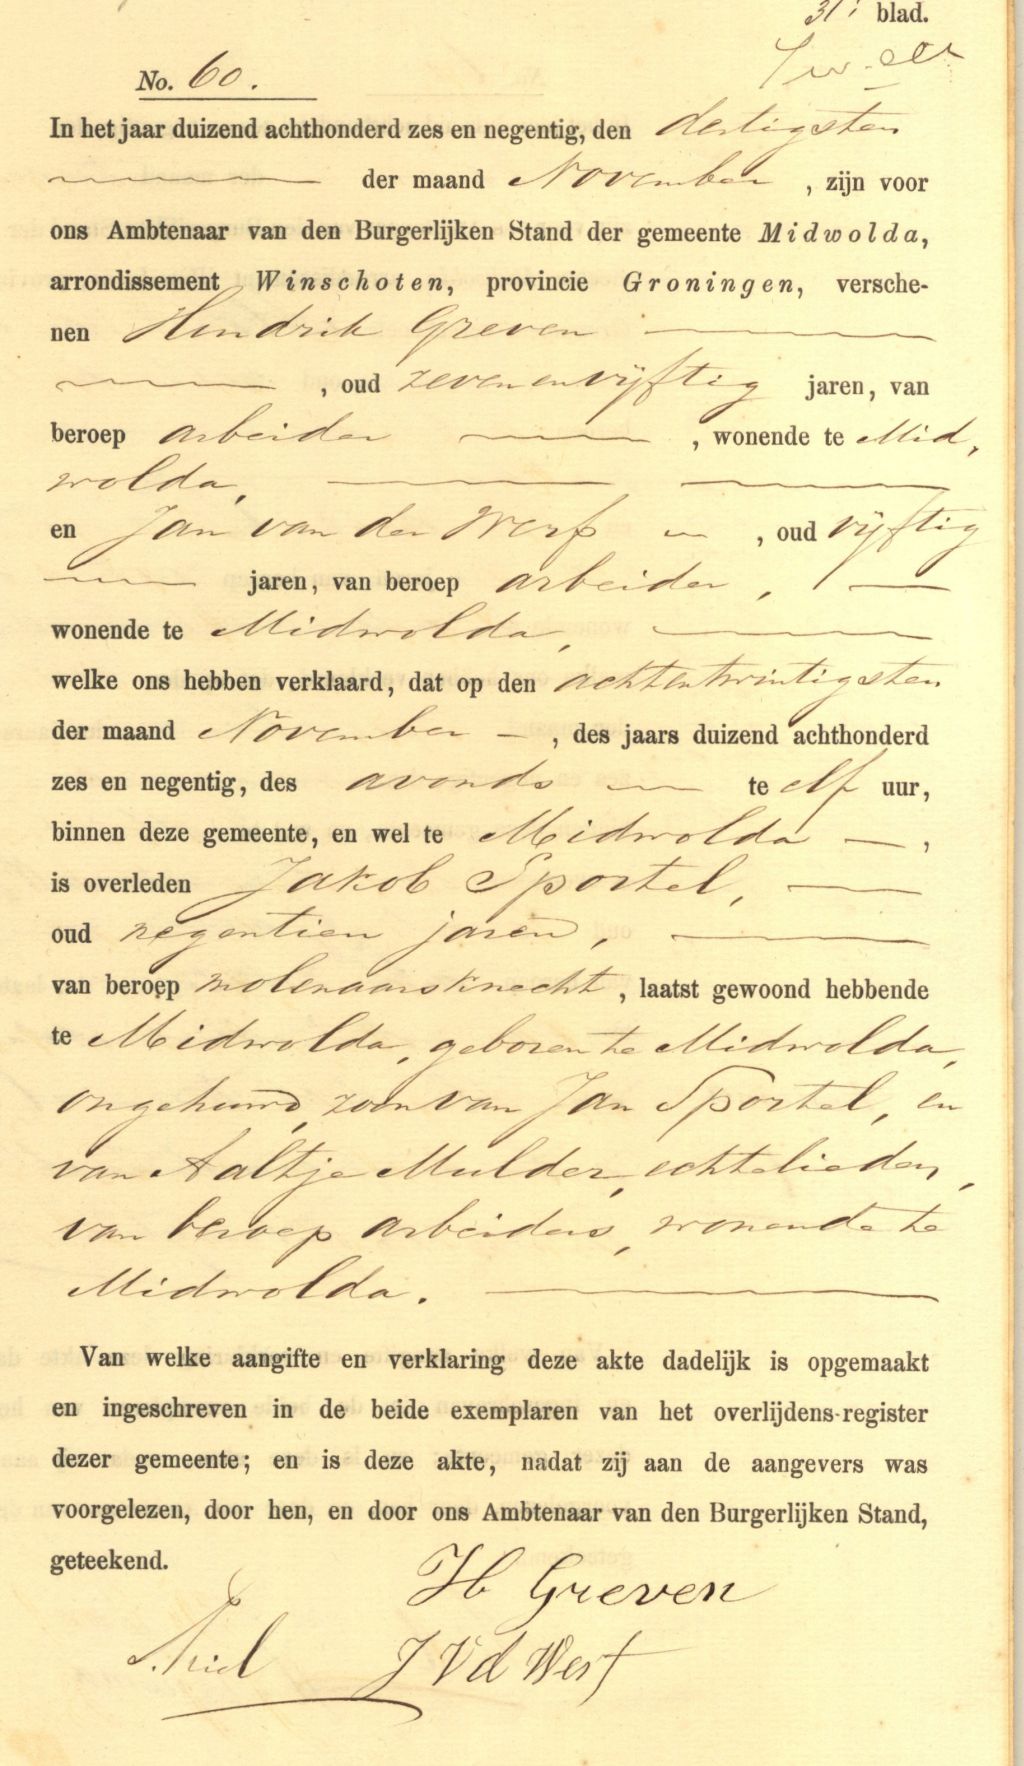 31e blad.
No. 60.
In het jaar duizend achthonderd zes en negentig, den dertigsten
der maand November, zijn voor
ons Ambtenaar van den Burgerlijken Stand der gemeente Midwolda,
arrondissement Winschoten, provincie Groningen, versche-
nen Hendrik Greven
, oud zevenenvijftig jaren, van
beroep arbeider, wonende te Mid,
wolda,
en Jan van der Werf, oud vijftig
jaren, van beroep arbeider,
wonende te Midwolda,
welke ons hebben verklaard, dat op den achtentwintigsten
der maand November, des jaars duizend achthonderd
zes en negentig, des avonds te elf uur,
binnen deze gemeente, en wel te Midwolda,
is overleden Jakob Sportel,
oud negentien jaren,
van beroep molenaarsknecht, laatst gewoond hebbende
te Midwolda, geboren te Midwolda,
ongehuwd, zoon van Jan Sportel, en
van Aaltje Mulder, echtelieden,
van beroep arbeiders, wonende te
Midwolda.
Van welke aangifte en verklaring deze akte dadelijk is opgemaakt
en ingeschreven in de beide exemplaren van het overlijdens-register
dezer gemeente; en is deze akte, nadat zij aan de aangevers was
voorgelezen, door hen, en door ons Ambtenaar van den Burgerlijken Stand,
geteekend.
H Greven
J Vd Werf